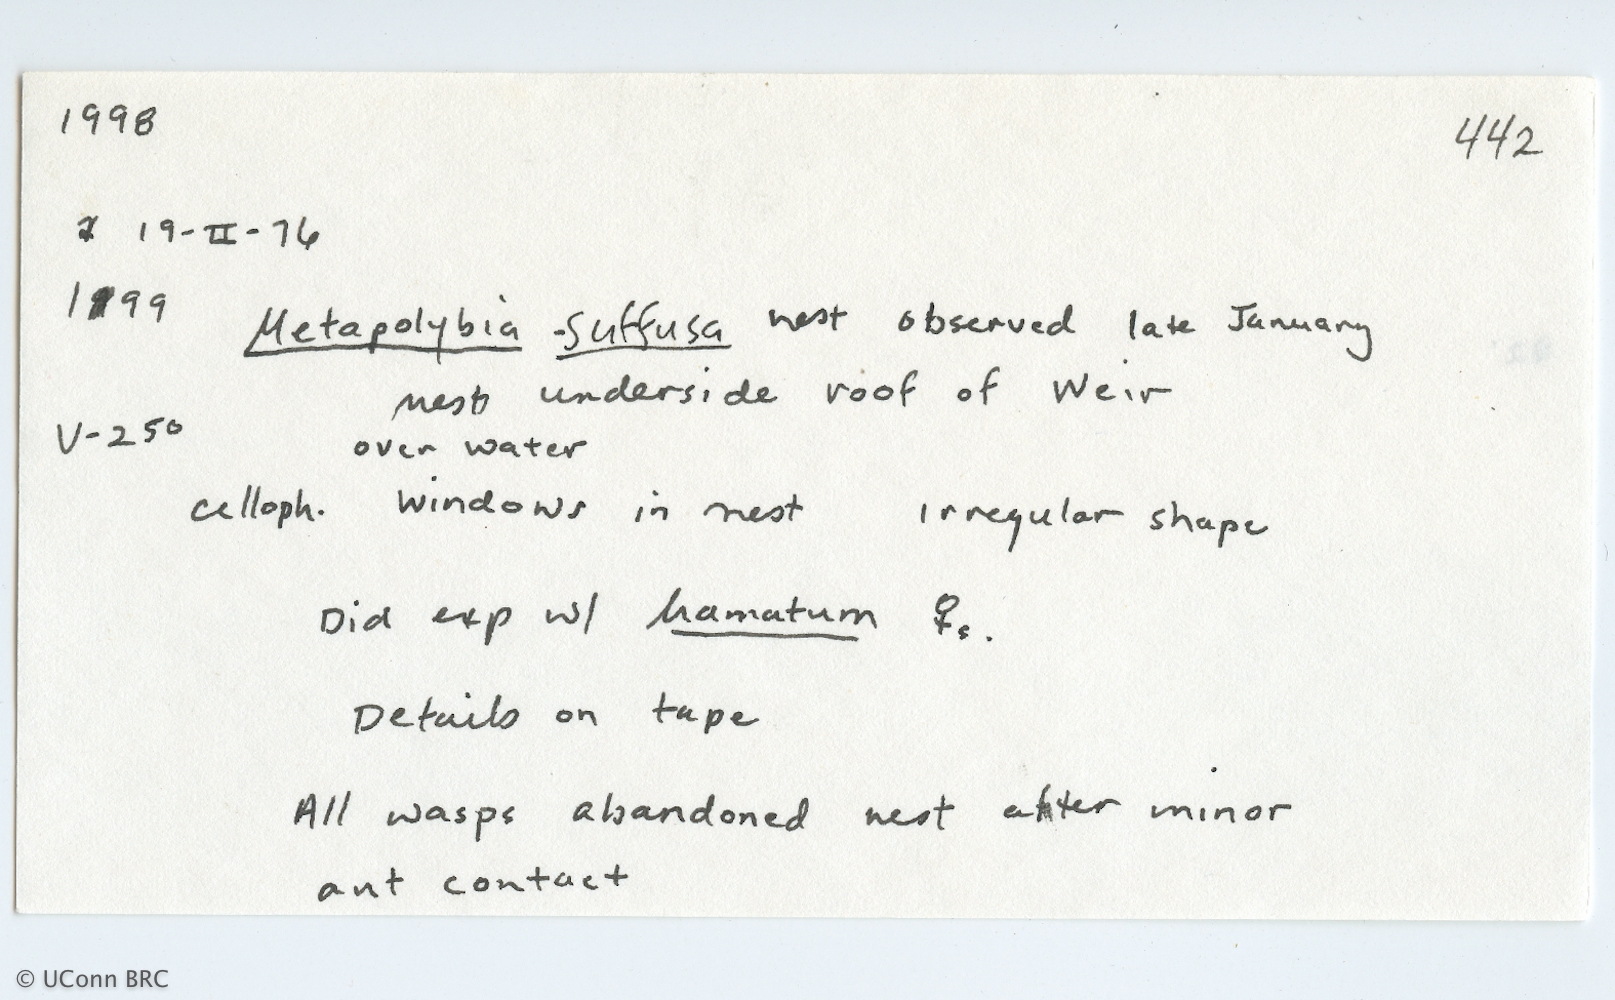 1998
442
19-II-76
1999 Metapolybia suffusa nest observed late January
nest underside roof of Weir
V-250
over water
celloph. windows in nest irregular shape
Did exp w/ hamatum ☿s.
Details on tape
All wasps abandoned nest after minor
ant contact
© UConn BRC